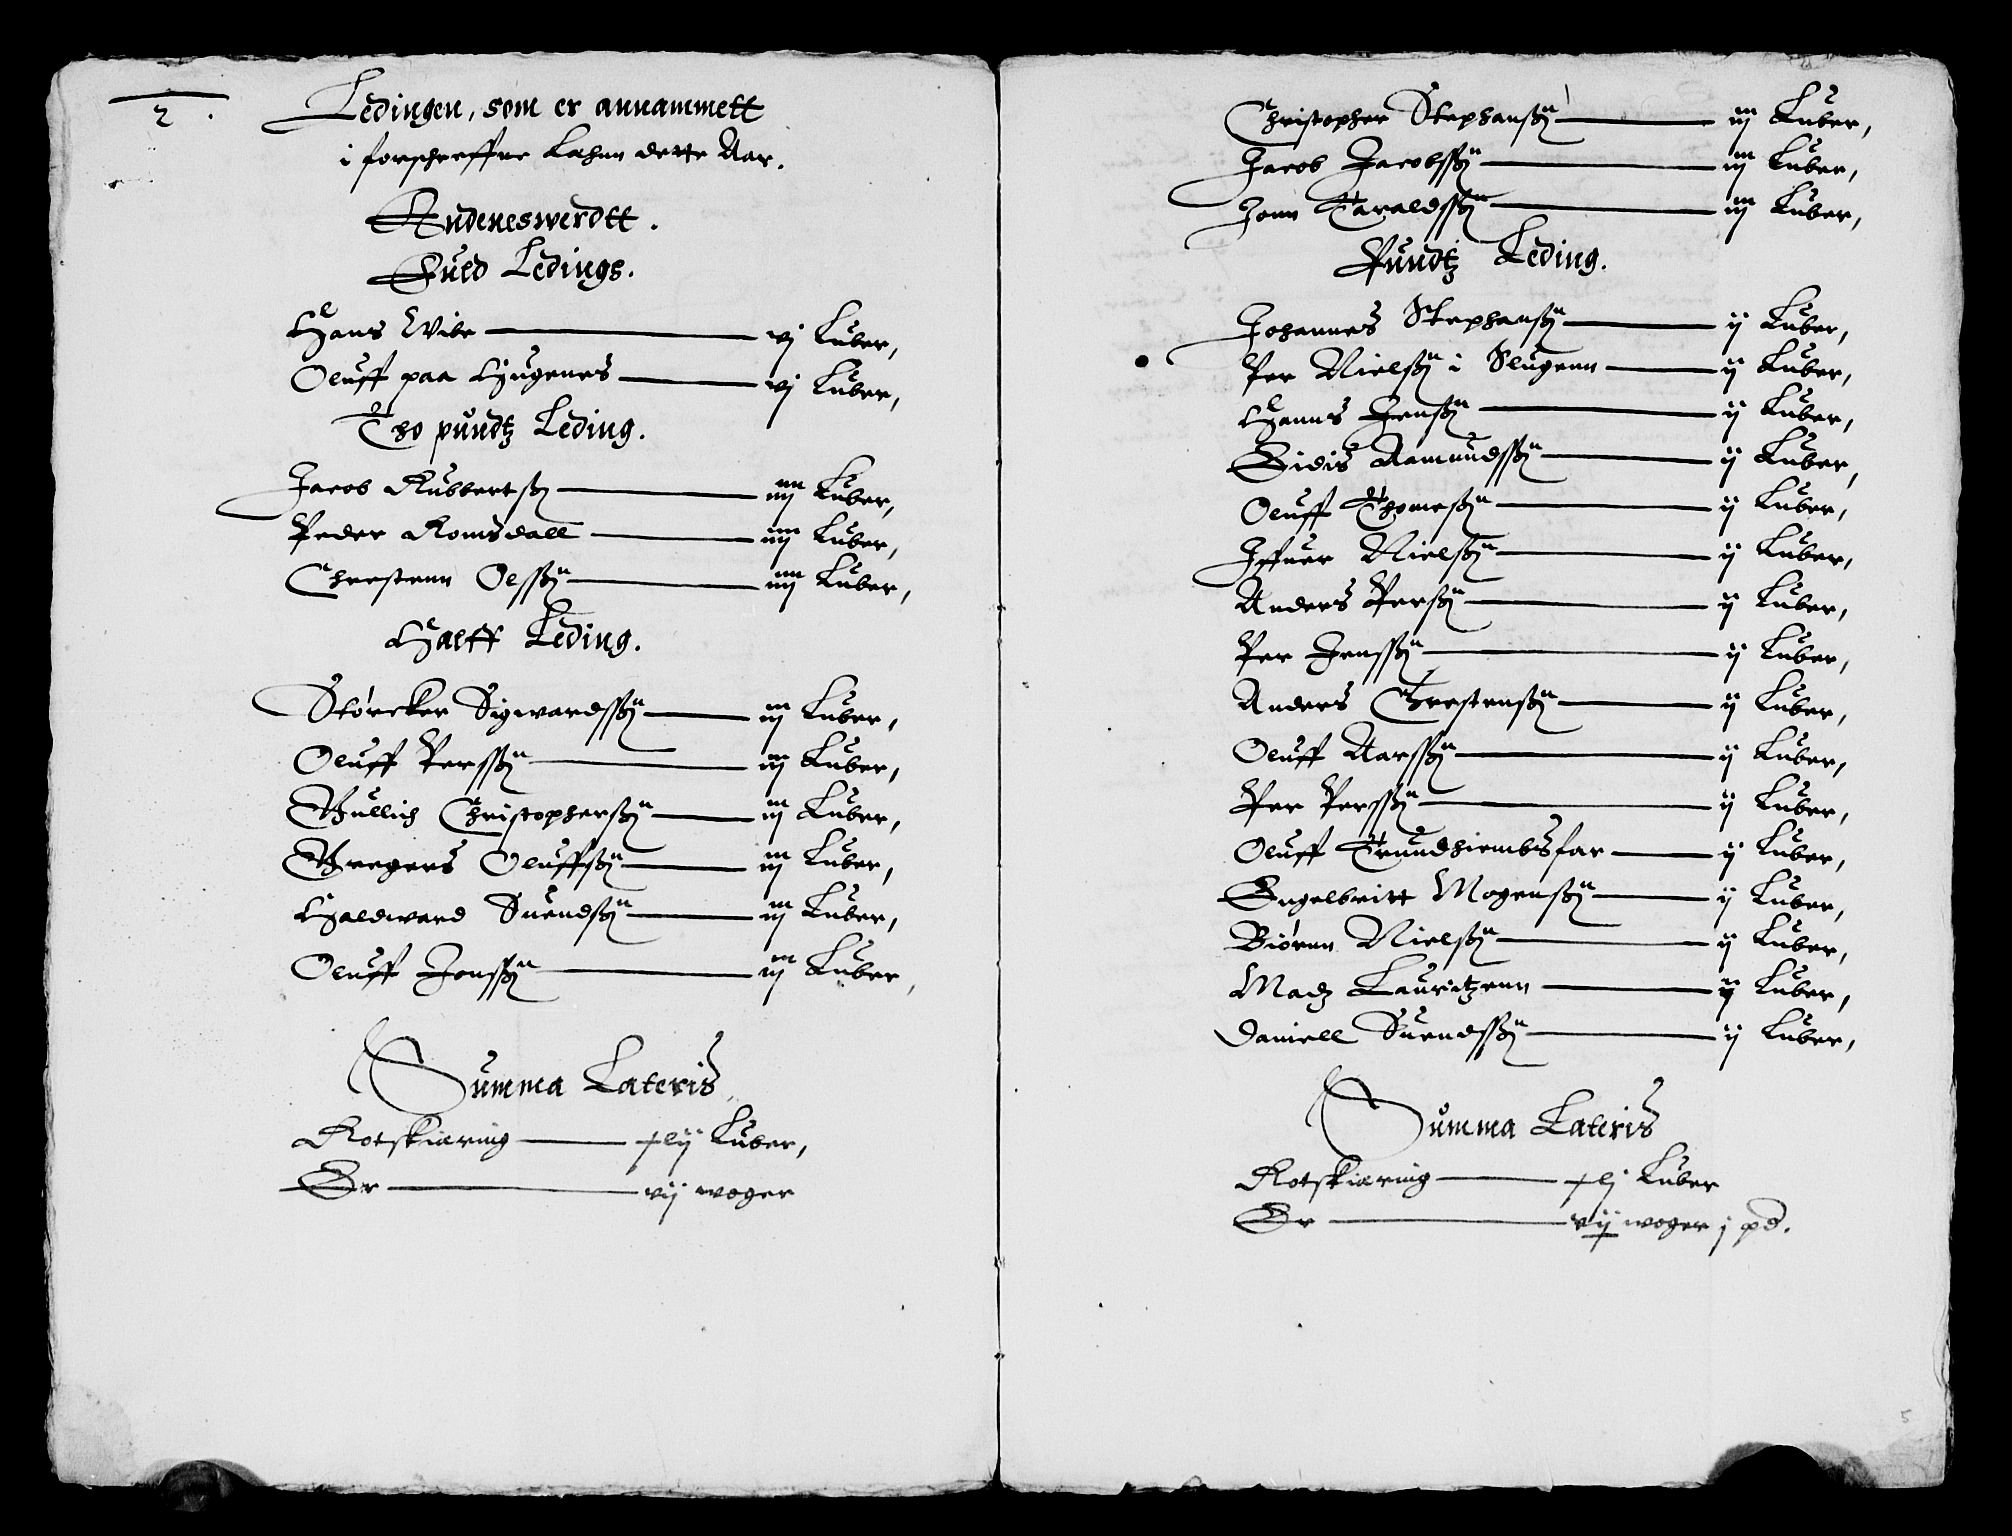 2.
Ledingen, som er annammett
i forschreffne Lahnn dette Aar.
Andeneswerdtt.
Fuld Ledings.
Hans Wibe — vj Luber,
Oluff paa Hougenes — vj Luber,
Tho pundtz Leding.
Jacob Rubbertsß — iiij Luber,
Peder Romsdall — iiij Luber,
Chrestenn Olsßn — iiij Luber,
Halff Leding.
Størcker Sigwardsßn — iij Luber,
Oluff Persßn — iij Luber,
Gullich Christophersßn — iij Luber,
Gregers Oluffsßn — iij Luber,
Haldward Suendsßn — iij Luber,
Oluff Jonsßn — iij Luber,
Summa Lateris
Rotskiæring — xlij Luber,
Er — vij woger
Christopher Stephansßn — iij Luber,
Jacob Jacobsßn — iij Luber,
Jonn Taraldsßn — iij Luber,
Pundtz Leding.
Johannes Stephansßn — ij Luber,
Per Nielsßn i Slugenn — ij Luber,
Hanns Jensßn — ij Luber,
Eidis Aamundsßn — ij Luber,
Oluff Thomesßn — ij Luber,
Iffuer Nielsßn — ij Luber,
Anders Persßn — ij Luber,
Per Jensßn — ij Luber,
Anders Chrestensßn — ij Luber,
Oluff Aarsßn — ij Luber,
Per Persßn — ij Luber,
Oluff Trundhiembsfar — ij Luber,
Engelbritt Mogensßn — ij Luber,
Biørnn Nielsßn — ij Luber,
Madz Lauritzenn — ij Luber,
Daniell Suendsßn — ij Luber,
Summa Lateris
Rotskiæring — xlj Luber
Er — vij woger j pd.
5